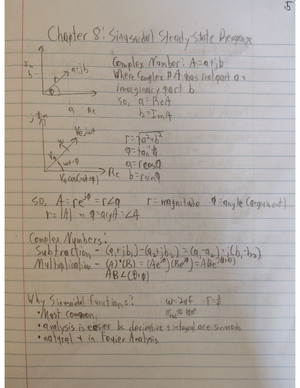 5
Chapter 8: Sinusoidal Steady State Response
Im
b
a+jb
φ
a Re
Complex Number: A = a+jb
Where complex # A has real part a +
imaginary part b
so, a = Re A
b = Im A
Im
V₀
ωt+φ
Re
V₀cos(ωt+φ)
r = √a²+b²
φ = tan⁻¹ b/a
a = rcosφ
b = rsinφ
so, A = re^jφ = r∠φ r = magnitude φ = angle (argument)
r = |A| φ = ∠A
Complex Numbers:
Subtraction - (a₁+jb₁)-(a₂+jb₂) = (a₁-a₂)+j(b₁-b₂)
Multiplication - (A)*(B) =
Why Sinusoidal Functions? ω = 2πf T = 1/f
• Most common
• analysis is easier bc derivative + integral are sinusoids
• natural + in Fourier Analysis